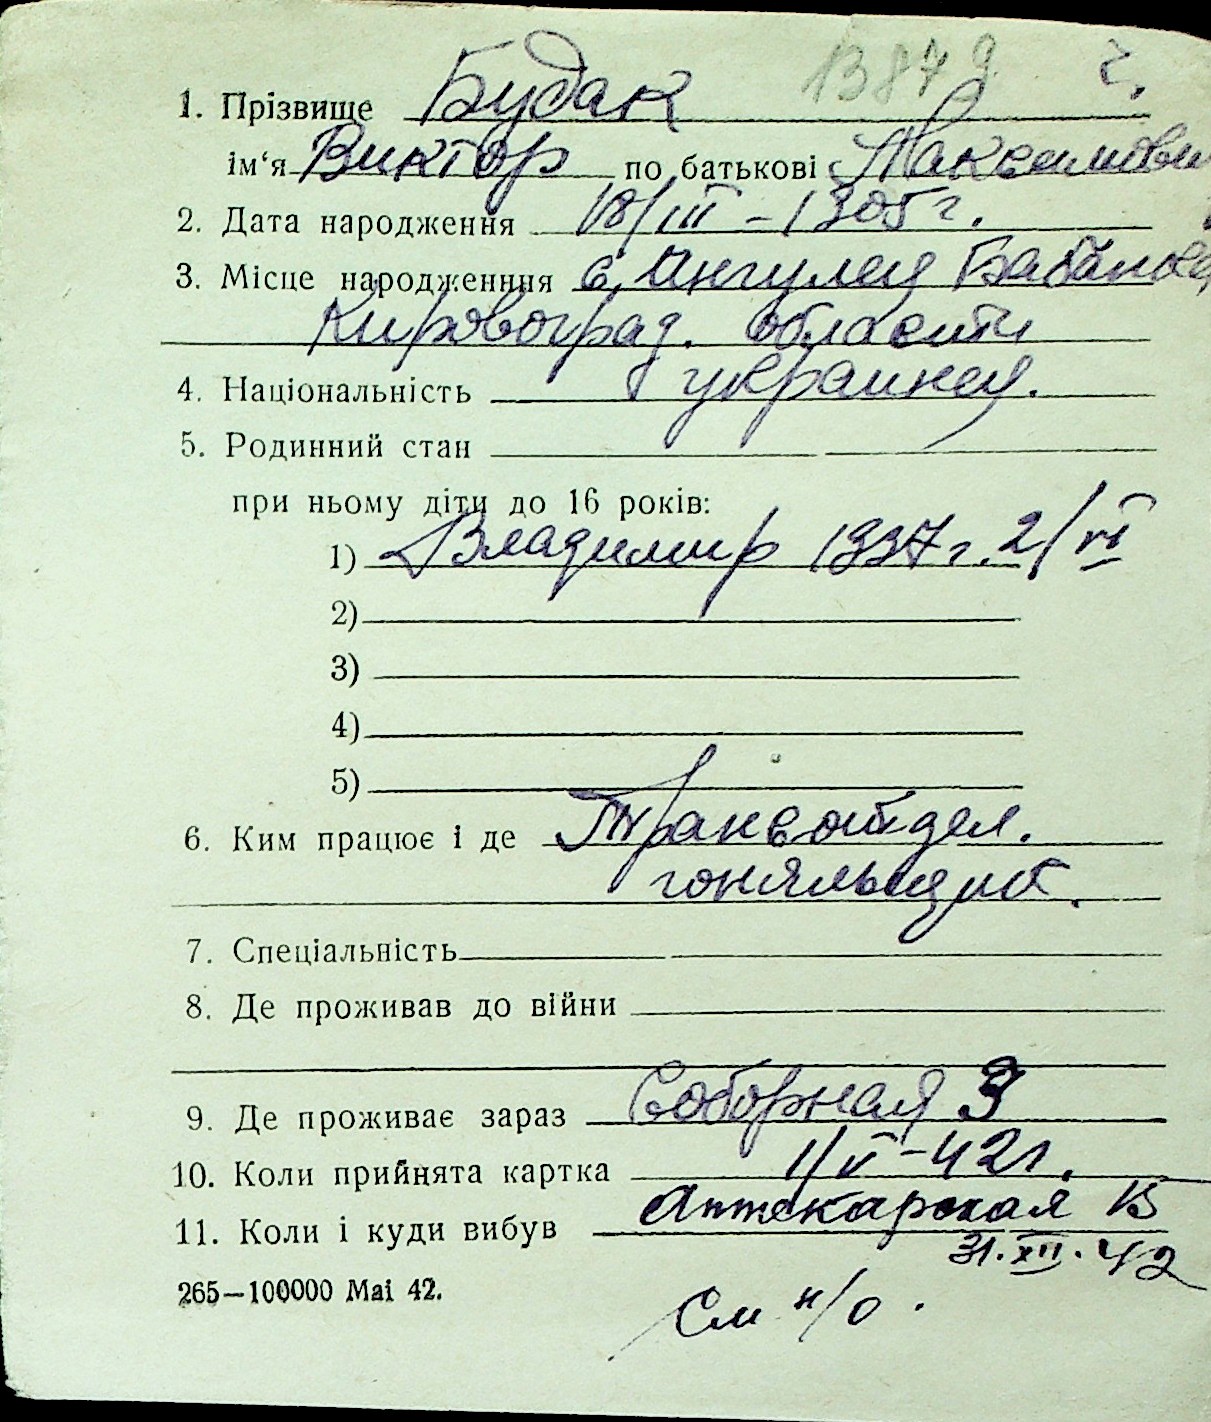 13879 2.
1. Прізвище Будак
ім‘я Виктор по батькові Максимови
2. Дата народження 18/III – 1905 г.
3. Місце народженння с. Ингулец
Кировоград. области
4. Національність украинец.
5. Родинний стан
при ньому діти до 16 років:
1) Владимир 1937 г. 2/VI
2)
3)
4)
5)
6. Ким працює і де
7. Спеціальність
8. Де проживав до війни
9. Де проживає зараз Соборная 3
10. Коли прийнята картка 1/V – 42 г.
11. Коли і куди вибув Аптекарская
31.XII.42
265—100000 Mai 42.
См н/о.